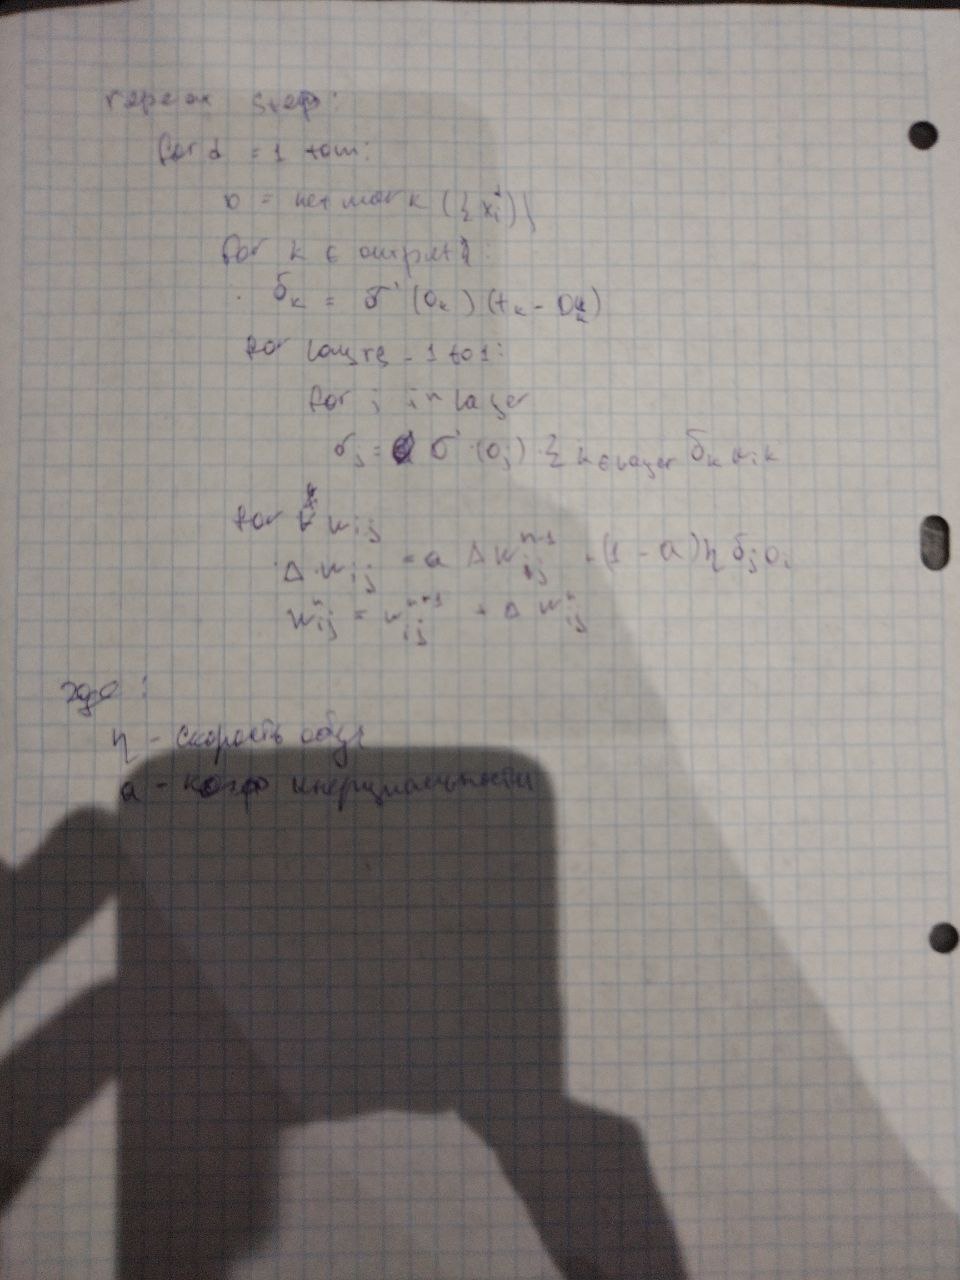 repeat step:
for d = 1 to m:
o = network ({x_i^d})
for k ∈ outputs:
δ_k = σ'(o_k)(t_k - o_k)
for layers - 1 to 1:
for j in layer
σ_j = σ'(o_j) · Σ k ∈ layer δ_k w_jk
for ∀ w_ij
Δ w_ij = a Δ w_ij^n-1 + (1 - a) η δ_j o_i
w_ij^n = w_ij^n-1 + Δ w_ij^n
где:
η - скорость обуч
a - коэф инерциальности